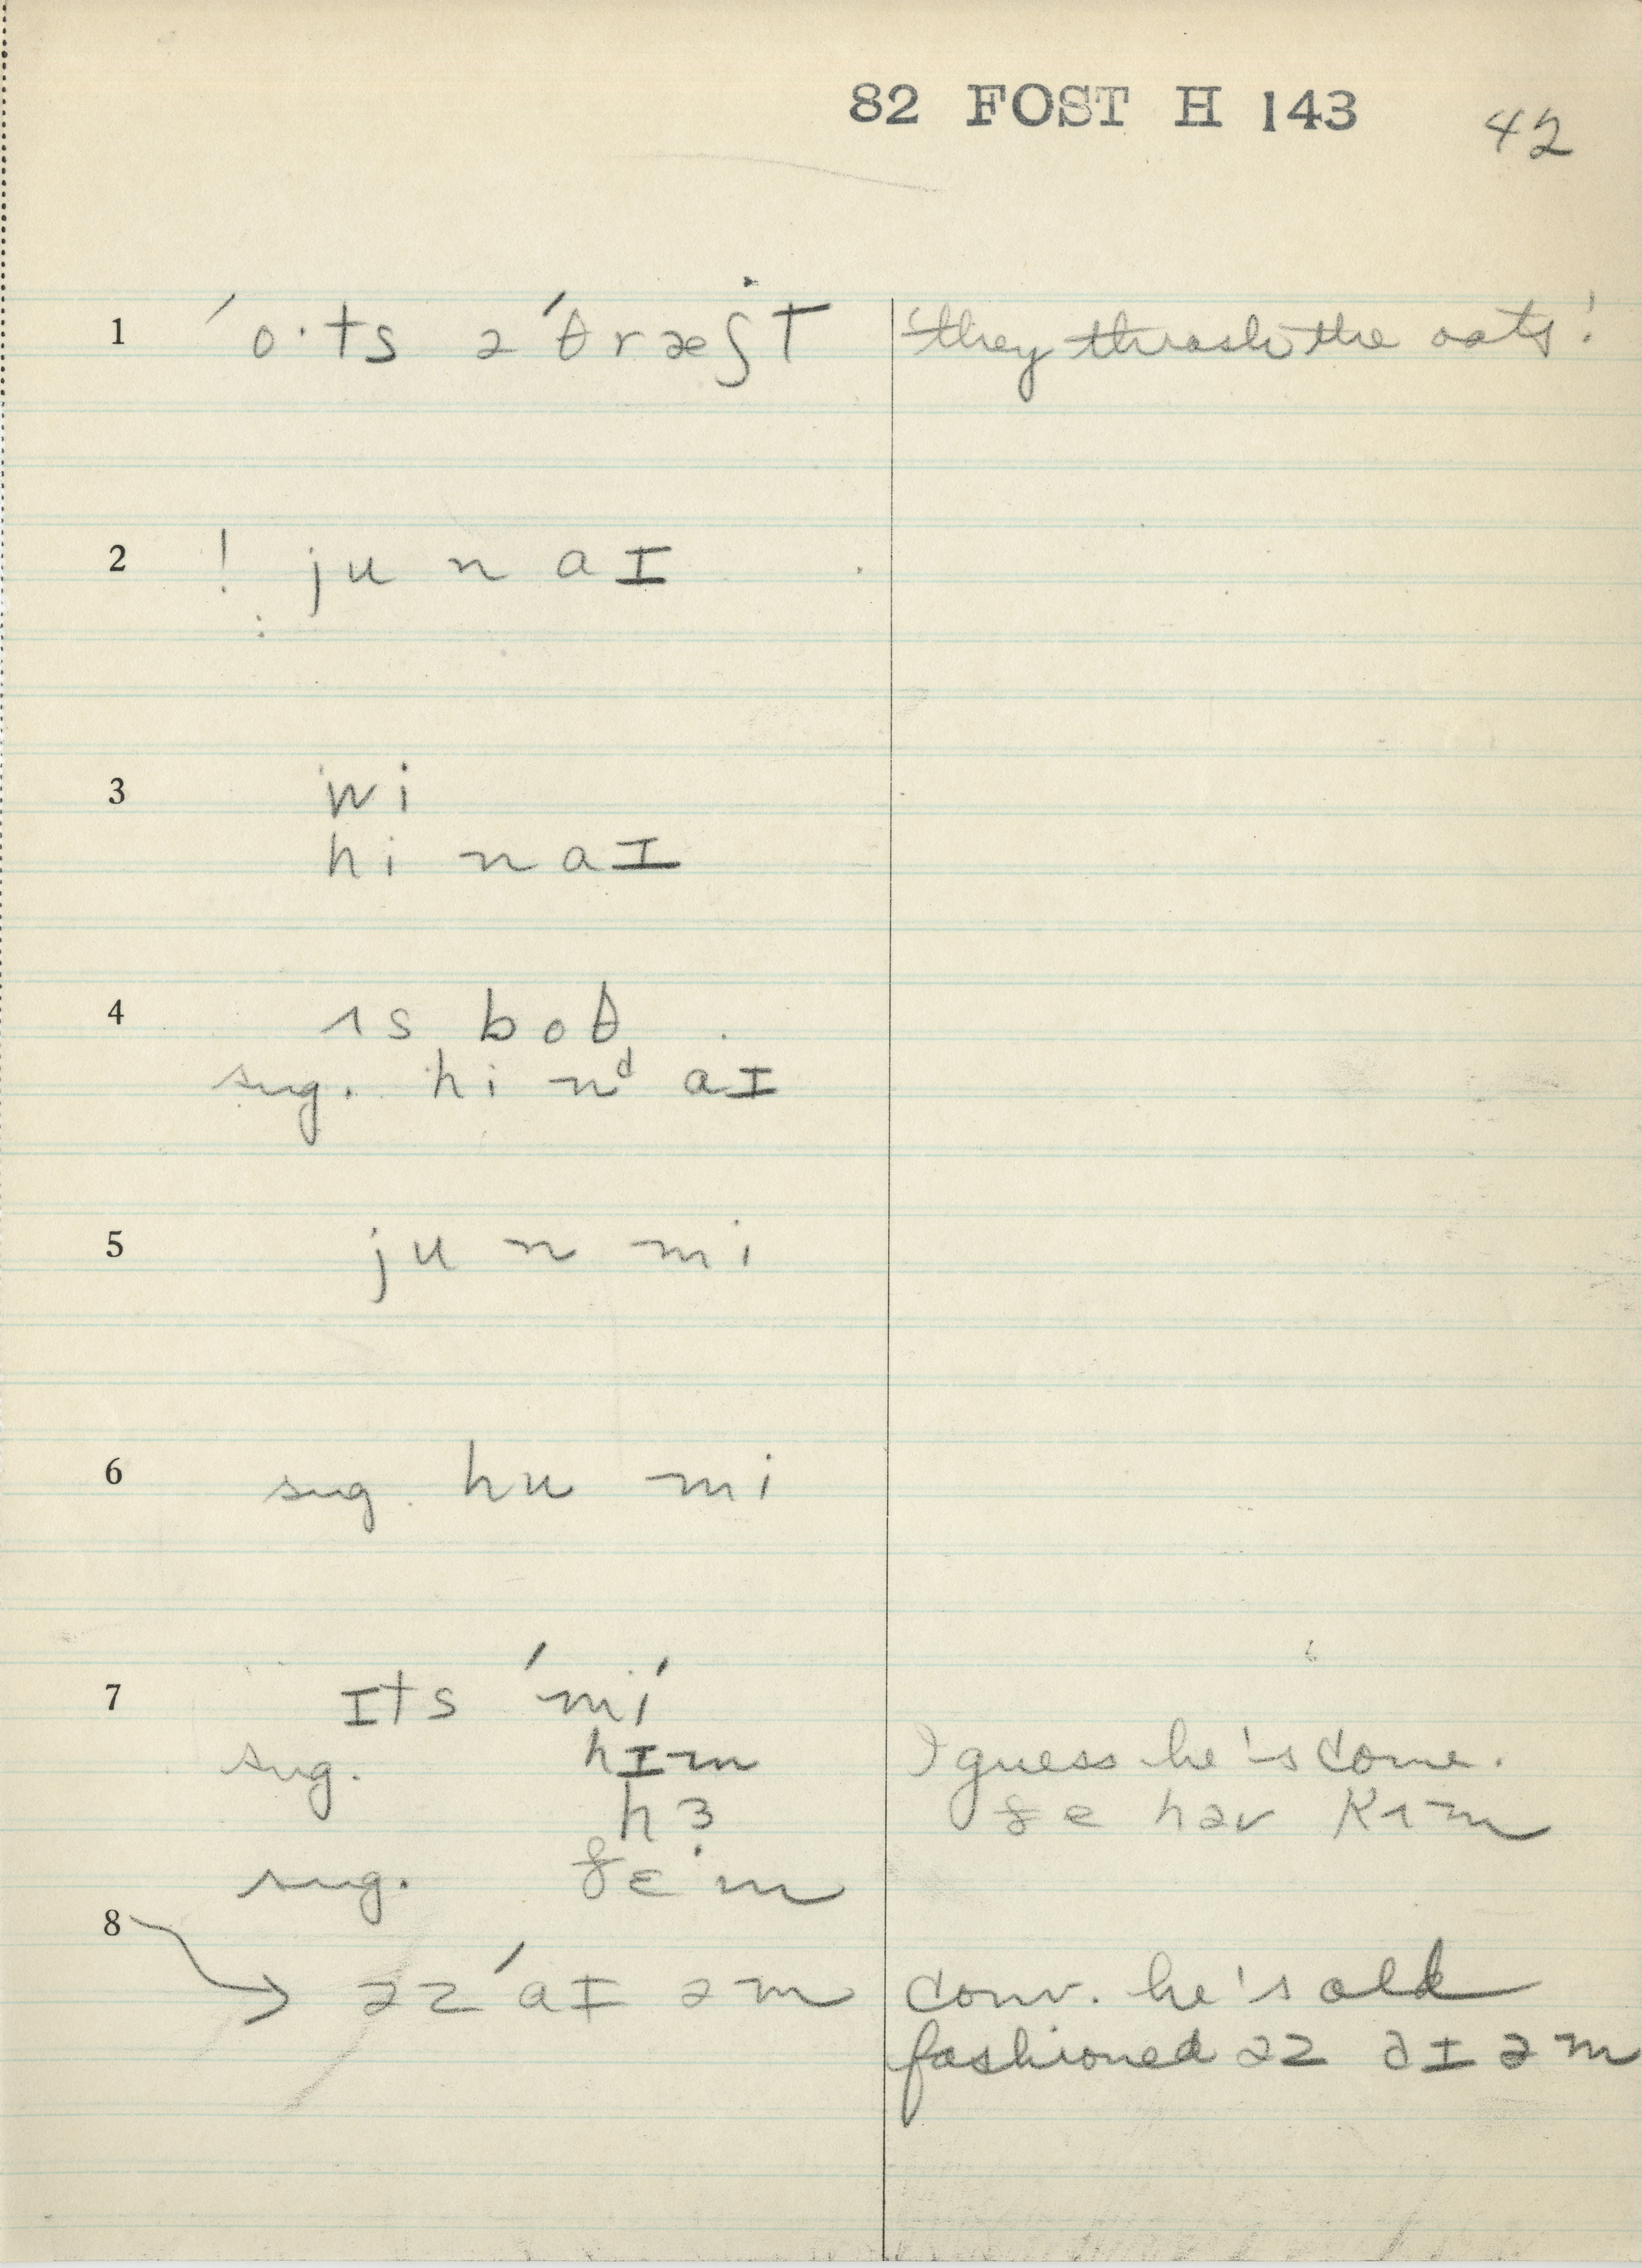 82 FOST H 143 42
1 ˈo·ts əˈθræʃt 'they thrash the oats'
2 ! ju n aɪ
3 wi
hi n aɪ
4 ʌs boθ
sug. hi nᵈ aɪ
5 ju n mi
6 sug. hu mi
7 ɪts ˈmi
sug. hɪm I guess he's come.
hɜ ðe həv kʌm
sug. ðɛˑm
8 → əz ˈaɪ əm conv. he's old
fashioned əz aɪ əm